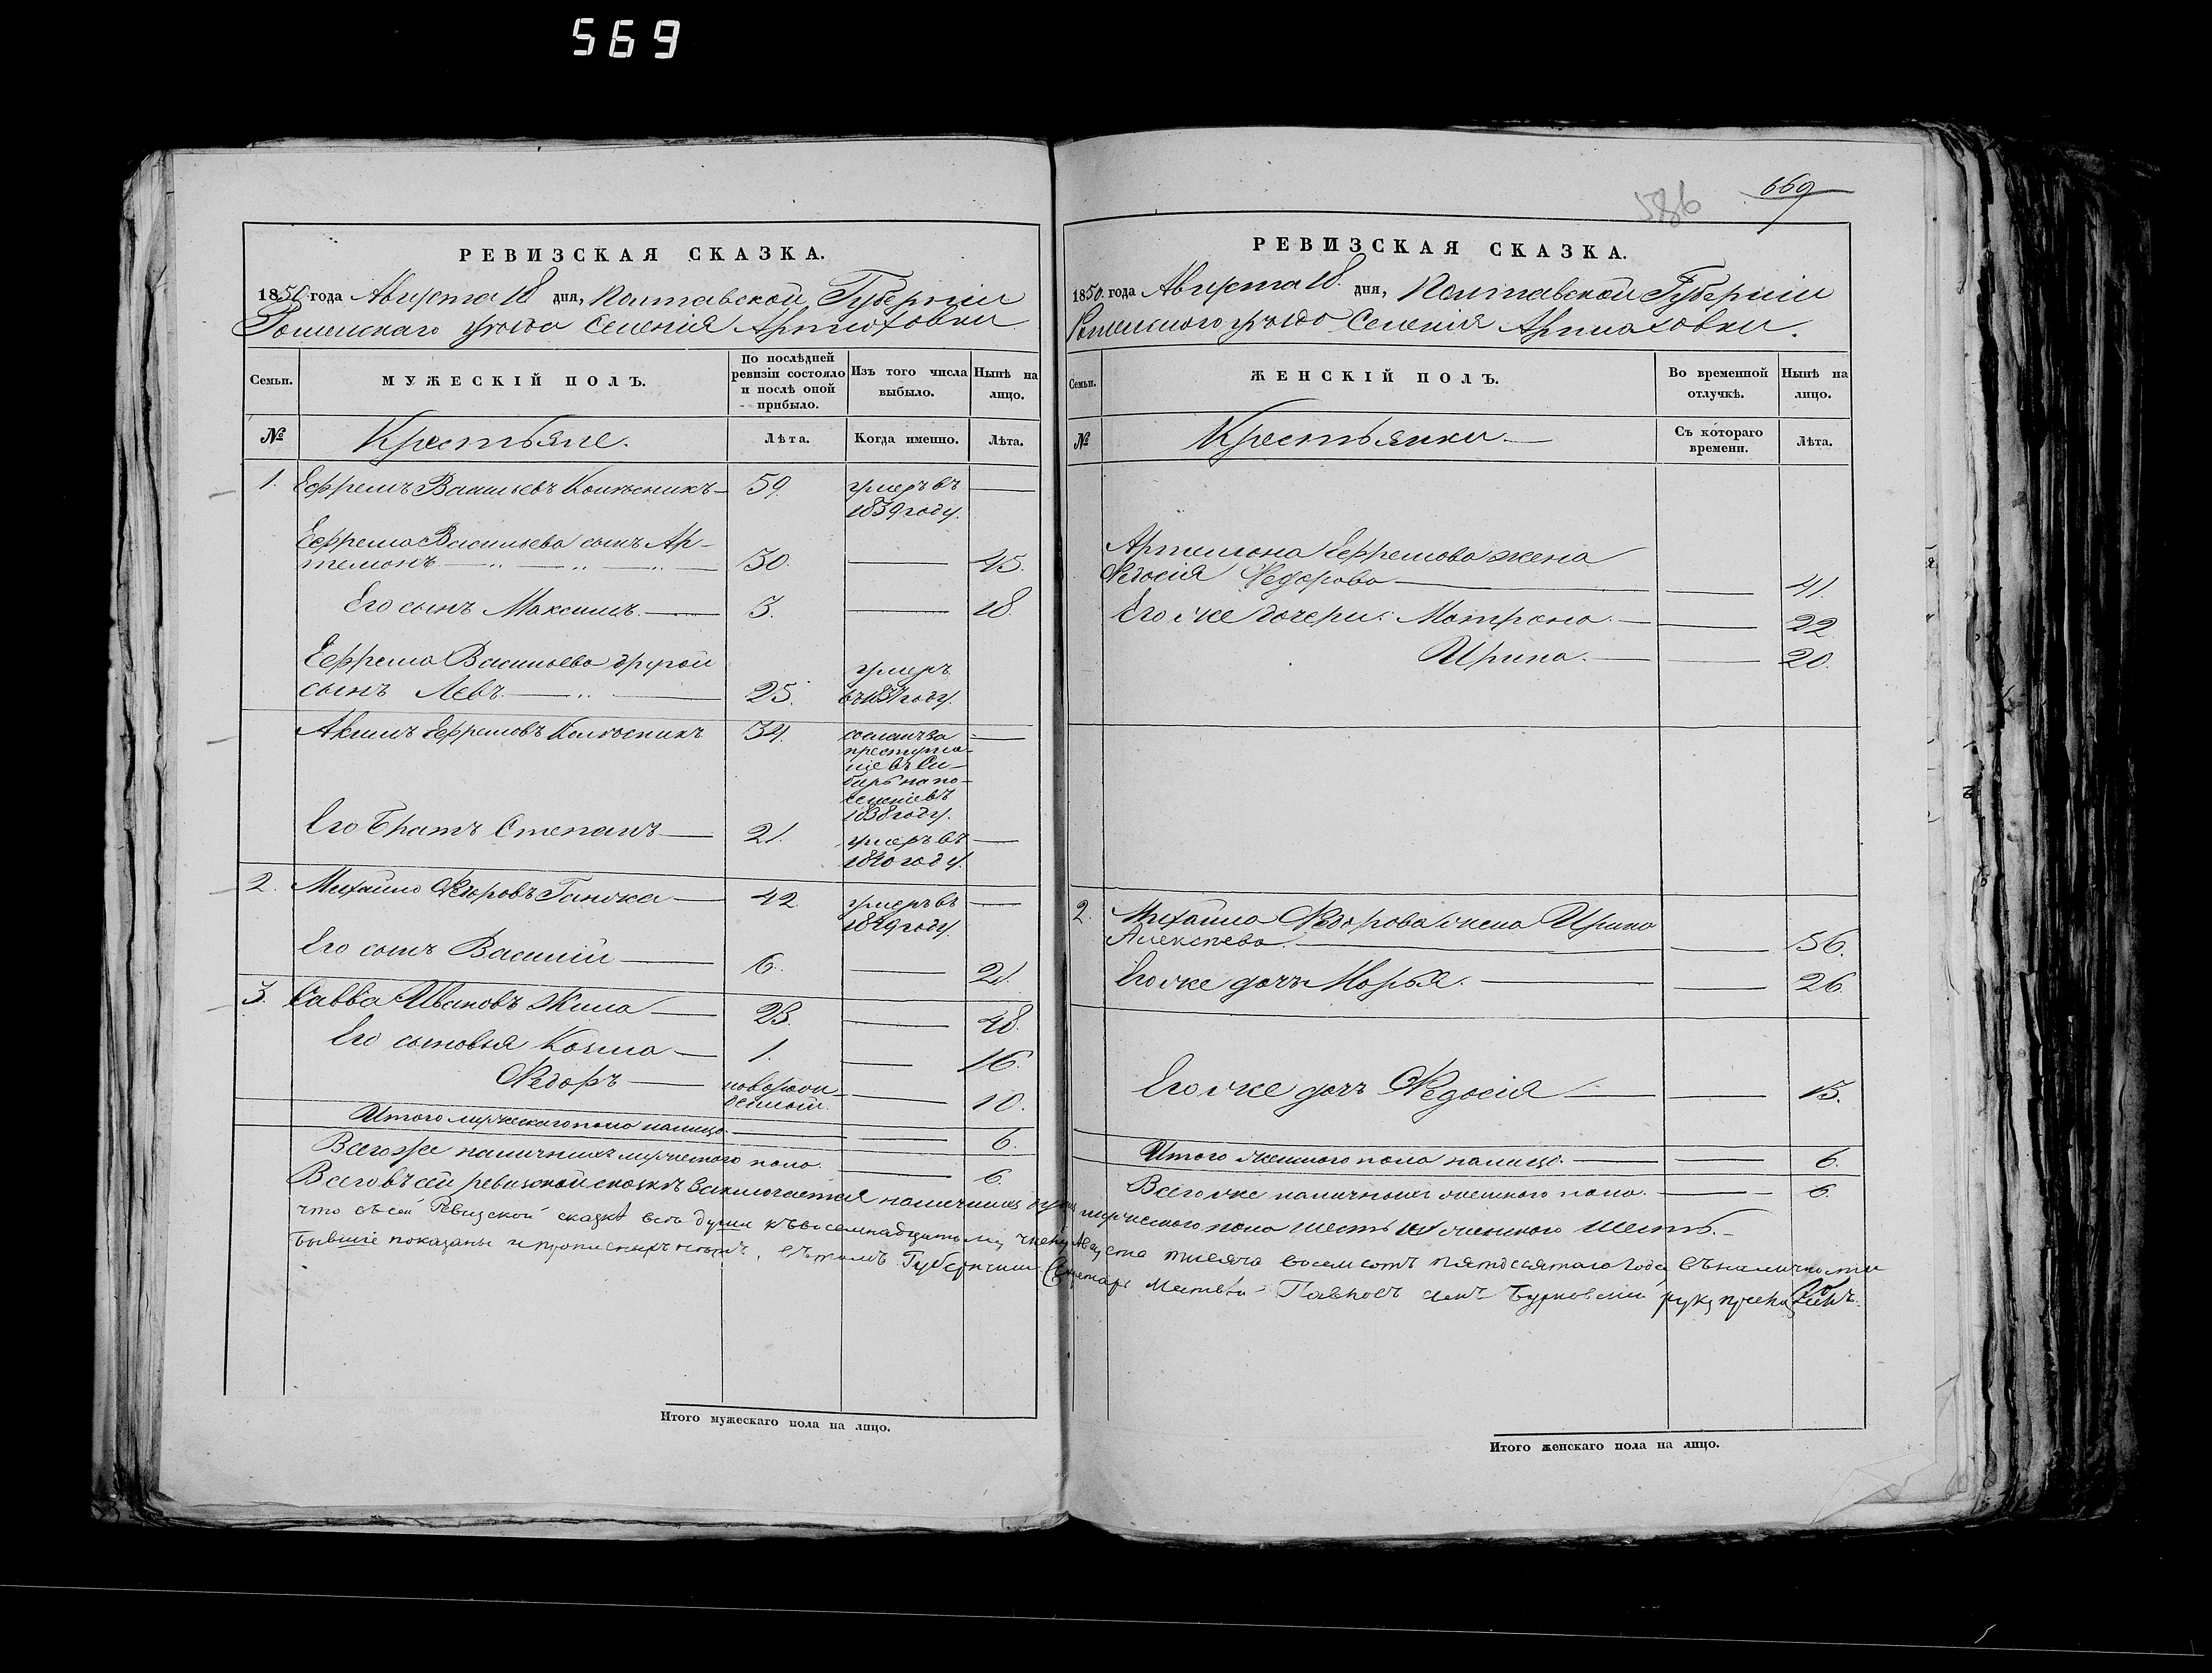 569
РЕВИЗСКАЯ СКАЗКА.
1850 года Августа 18 дня, Полтавской Губерніи
Роменскаго уѣзда Селенія Артюховки
Семьи.
МУЖЕСКІЙ ПОЛЪ.
По послѣдней ревизіи состояло и послѣ оной прибыло.
Изъ того числа выбыло.
Нынѣ на лицо.
№
Крестьяне.
Лѣта.
Когда именно.
Лѣта.
1. Ефремъ Васильевъ Колѣсникъ 59. умеръ въ
1839 году.
Ефрема Васильева сынъ Ар-
темонъ 30. 45.
Его сынъ Максимъ. 3. 18.
Ефрема Васильева другой умеръ
сынъ Левъ 25. въ году.
Акимъ Ефремовъ Колѣсникъ 34. сосланъ за
преступле-
ніе въ Си-
бирь на по-
селеніе въ
1838 году.
Его Братъ Степанъ 21. умеръ въ
1840 году.
2. Михайло Федоровъ 42. умеръ въ
1849 году.
Его сынъ Василій 6. 21.
3. Савва Ивановъ Жила 48.
Его сыновья Козма 1. 16.
Федоръ новорож-
денный. 10.
Итого мужескаго пола налицо. 6.
Всего же наличныхъ мужескаго пола. 6.
Итого мужескаго пола на лицо.
586
669
РЕВИЗСКАЯ СКАЗКА.
1850 года Августа 18. дня, Полтавской Губерніи
Роменскаго уѣзда Селенія Артюховки.
Семьи.
ЖЕНСКІЙ ПОЛЪ.
Во временной отлучкѣ.
Нынѣ на лицо.
№
Крестьянки
Съ котораго времени.
Лѣта.
Артемона Ефремова жена
Федосія Федорова 41.
Его же дочери: Матрена. 22
Ирина. 20.
2. Михайла Федорова жена Ирина
Алексѣева. 56.
Его же дочь Марья. 26.
Его же дочь Федосія
Итого женскаго пола налицо. 6.
Всего же наличныхъ женскаго пола. 6.
Всего въ сей ревизской сказкѣ заключается наличныхъ душъ мужескаго пола шесть и женскаго шесть.
что въ сей Ревизской сказкѣ всѣ души къ восемнадцатому числу Августа тысяча восемсотъ пятдесятаго года въ наличности
бывшіе показаны и прописныхъ нѣтъ, въ томъ Губернскій Секретарь Павловъ сынъ руку приложилъ.
Итого женскаго пола на лицо.